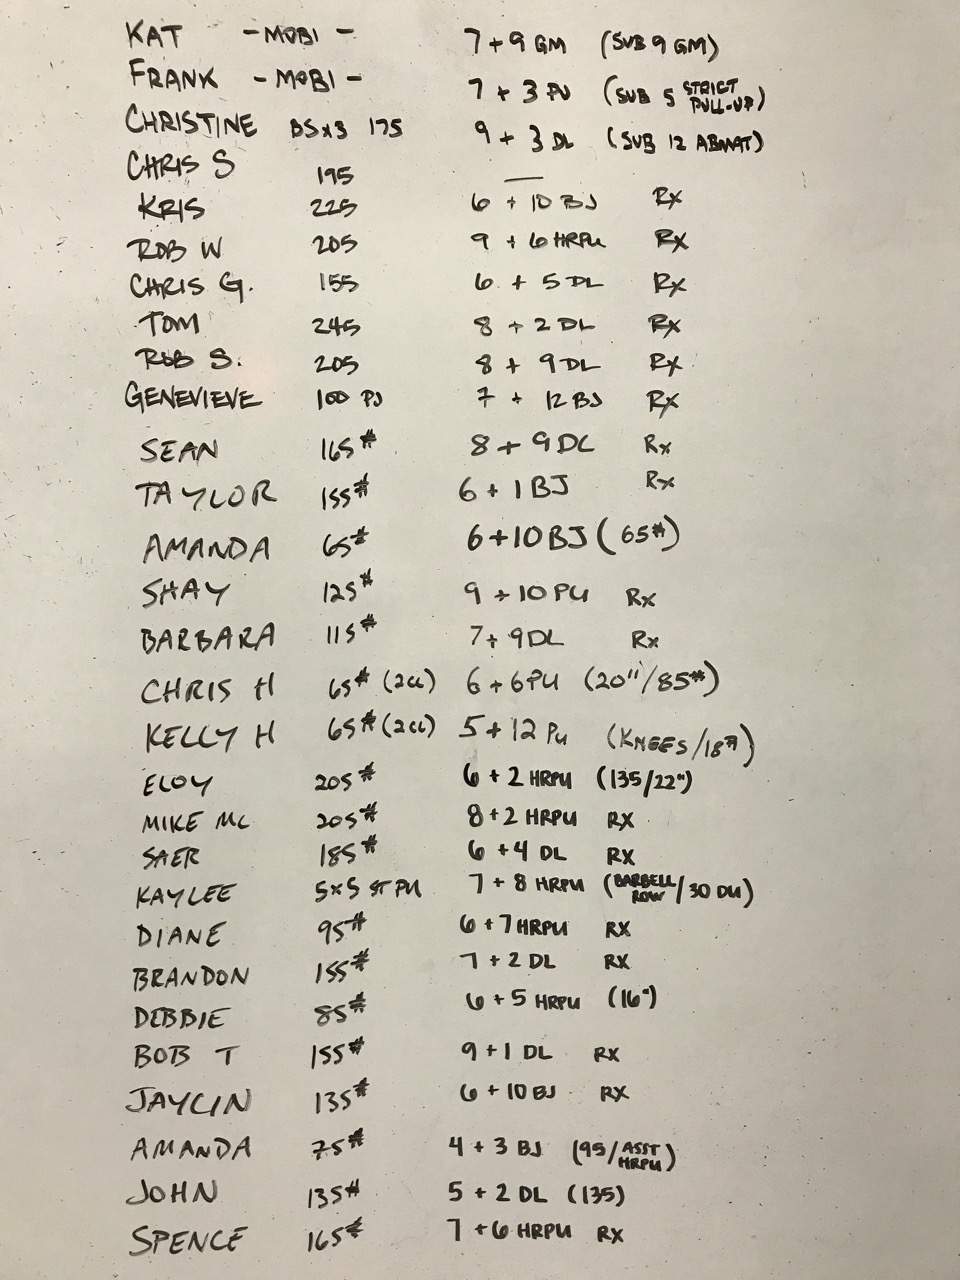 KAT - MOBI - 7 + 9 GM (SUB 9 GM)
FRANK - MOBI - 7 + 3 PU (SUB 5 STRICT PULL-UP)
CHRISTINE BSX3 175 9 + 3 DL (SUB 12 ABMAT)
CHRIS S 195 —
KRIS 225 6 + 10 BJ RX
ROB W 205 9 + 6 HRPU RX
CHRIS G. 155 6 + 5 DL RX
TOM 245 8 + 2 DL RX
ROB S. 205 8 + 9 DL RX
GENEVIEVE 100 PJ 7 + 12 BJ RX
SEAN 165# 8 + 9 DL Rx
TAYLOR 155# 6 + 1 BJ Rx
AMANDA 65# 6 + 10 BJ (65#)
SHAY 125# 9 + 10 PU Rx
BARBARA 115# 7 + 9 DL Rx
CHRIS H 65# (2CC) 6 + 6 PU (20"/85#)
KELLY H 65# (2CC) 5 + 12 PU (KNEES/
ELOY 205# 6 + 2 HRPU (135/22")
MIKE MC 205# 8 + 2 HRPU RX
SAER 185# 6 + 4 DL RX
KAYLEE 5x5 ST PU 7 + 8 HRPU (BARBELL ROW/30 DU)
DIANE 95# 6 + 7 HRPU RX
BRANDON 155# 7 + 2 DL RX
DEBBIE 85# 6 + 5 HRPU (16")
BOB T 155# 9 + 1 DL RX
JAYLIN 135# 6 + 10 BJ RX
AMANDA 75# 4 + 3 BJ (95/ASST HRPU)
JOHN 135# 5 + 2 DL (135)
SPENCE 165# 7 + 6 HRPU RX